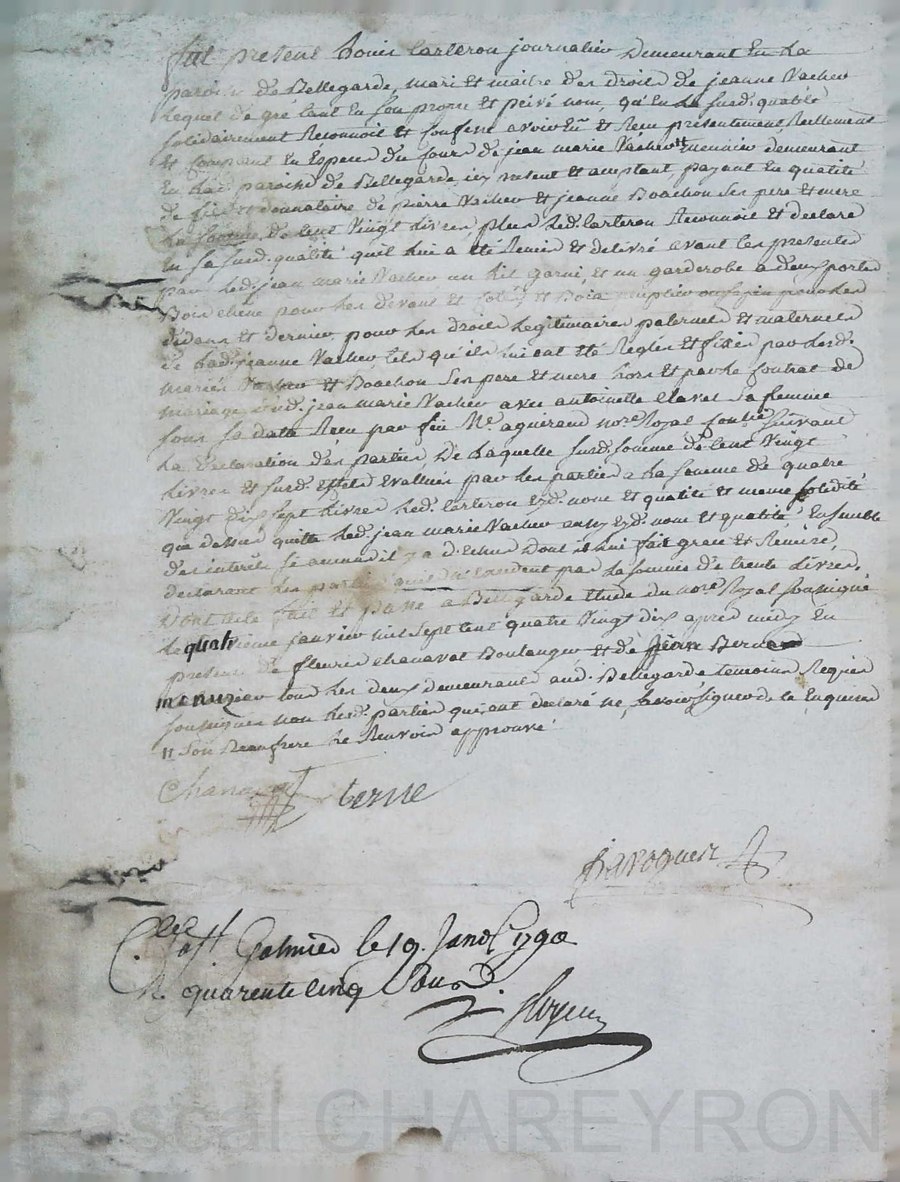 fut present Louis Carteron journalier Demeurant En La
paroisse de Bellegarde, mari et maitre des Droits De jeanne Vacher
Lequel de gré tant En son propre et privé nom, qu'En La susd. qualité
solidairement Reconnoit et Confesse avoir Eu et Recu presentement Reellement
et Comptant En Especes du Cours De jean marie Vacher " Meunier demeurant
En Lad. paroisse de Bellegarde, icy present et aceptant payant En qualité
de fils et donnataire de pierre Vacher et jeanne Boachon ses pere et mere
La somme de Cent Vingt Livres, plus Led. Carteron Reconnoit et declare
En sa susd. qualité quil Lui a été Remis et delivré avant Les presentes
par Led. jean marie Vacher un Lit garni, et un garderobe a deux portes
Bois chene pour Les devant et Cotés et Bois sapin pour Les
dedans et dernier pour Les Droits Legitimaires paternels et maternels
de Lad. jeanne Vacher tels qu'ils Lui ont été Reglés et fixés par Lesd.
mariés Vacher et Boachon ses pere et mere Lors et par Le Contrat de
mariage dud. jean marie Vacher avec antoinette Clavel sa femme
sous sa date Recu par feu Me. aguiraud nore. Royal suivant
La declaration des parties De Laquelle susd. somme de Cent Vingt
Livres et susd. Effets Evallués par Les parties a La somme de quatre
Vingt dix sept Livres Led. Carteron Ezd. nom et qualité et meme solidité
que dessus quitte Led. jean marie Vacher aussy Ezd. nom et qualité, Ensemble
des interets si aucun il y a d'Echus Dont il Lui fait grace et Remise,
declarant Les parties quils n'Excedent pas La somme de trente Livres,
Dont acte fait et passé a Bellegarde Etude du nore. Royal soussigné
Le quatrieme janvier mil sept Cent quatre Vingt dix apres midy En
presence de fleury Chanavat Boulanger et de pierre Berne
menuzier tous Les deux demeurants aud. Bellegarde temoins Requis
soussignés non Lesd. parties qui ont declaré ne scavoir signer de ce Enquises
" son Beaufrere Le Renvoir approuvé
Chanavat Berne
C.llé a St. Galmier le 19. Janv. 1790
R. quarente cinq Sous